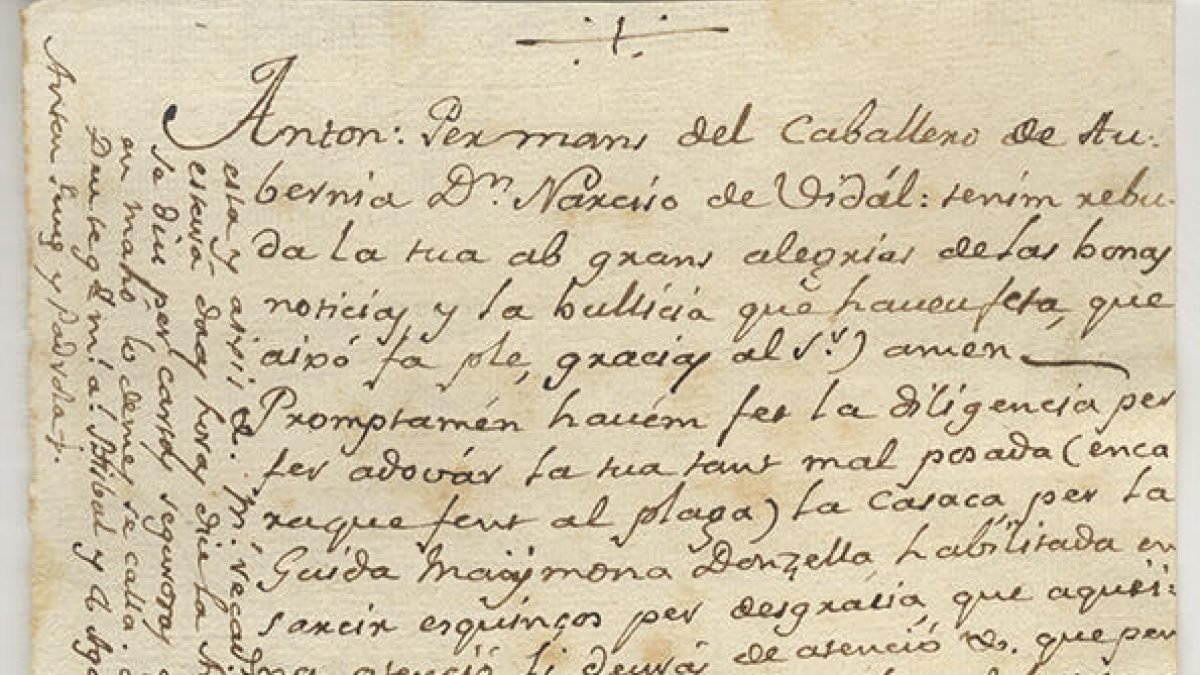 Anton: Per mans del Caballero de Au-
bernia Dn. Narciso de Vidál: tenim rebu-
da la tua ab grans alegrias de las bonas
noticias y la bullicia que haveu feta, que
aixó fa ple, gracias al Sr.) amen
Promptamén havém fet la diligencia per
fer adovár la tua tant mal posada (enca
raque fent al plaga) la Casaca per la
Guida Maÿmona Donzella habilitada en
sarcir esquinços per desgrasia, que aquesi:
na atenció li deurás de atenció &. que per
esta y axsi &. Mr. recad
estará doas horas die la
se diu per cartas seguras
en mahó lo demes se calla.
Deu teg d. mia! Stibal y d Ago
Anton Puig y